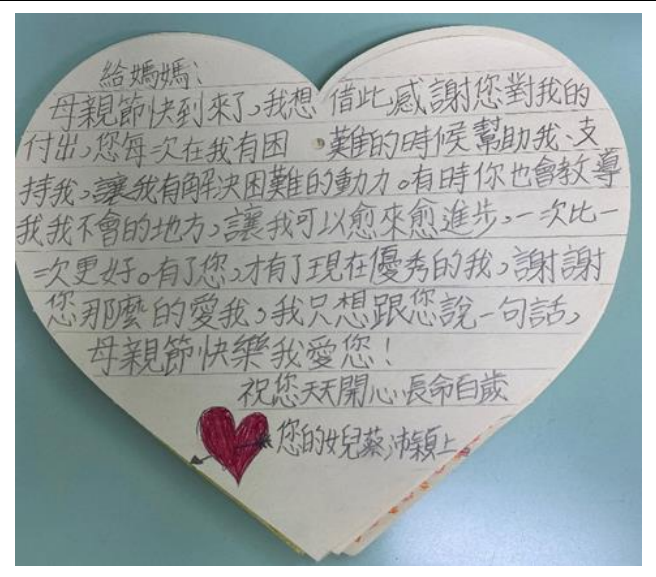 給媽媽：
母親節快到來了，我想借此感謝您對我的
付出，您每次在我有困難的時候幫助我、支
持我，讓我有解決困難的動力。有時你也會教導
我我不會的地方，讓我可以愈來愈進步，一次比一
次更好。有了您，才有了現在優秀的我，謝謝
您那麼的愛我，我只想跟您說一句話，
母親節快樂我愛您！
祝您天天開心長命百歲
您的女兒蔡沛穎上